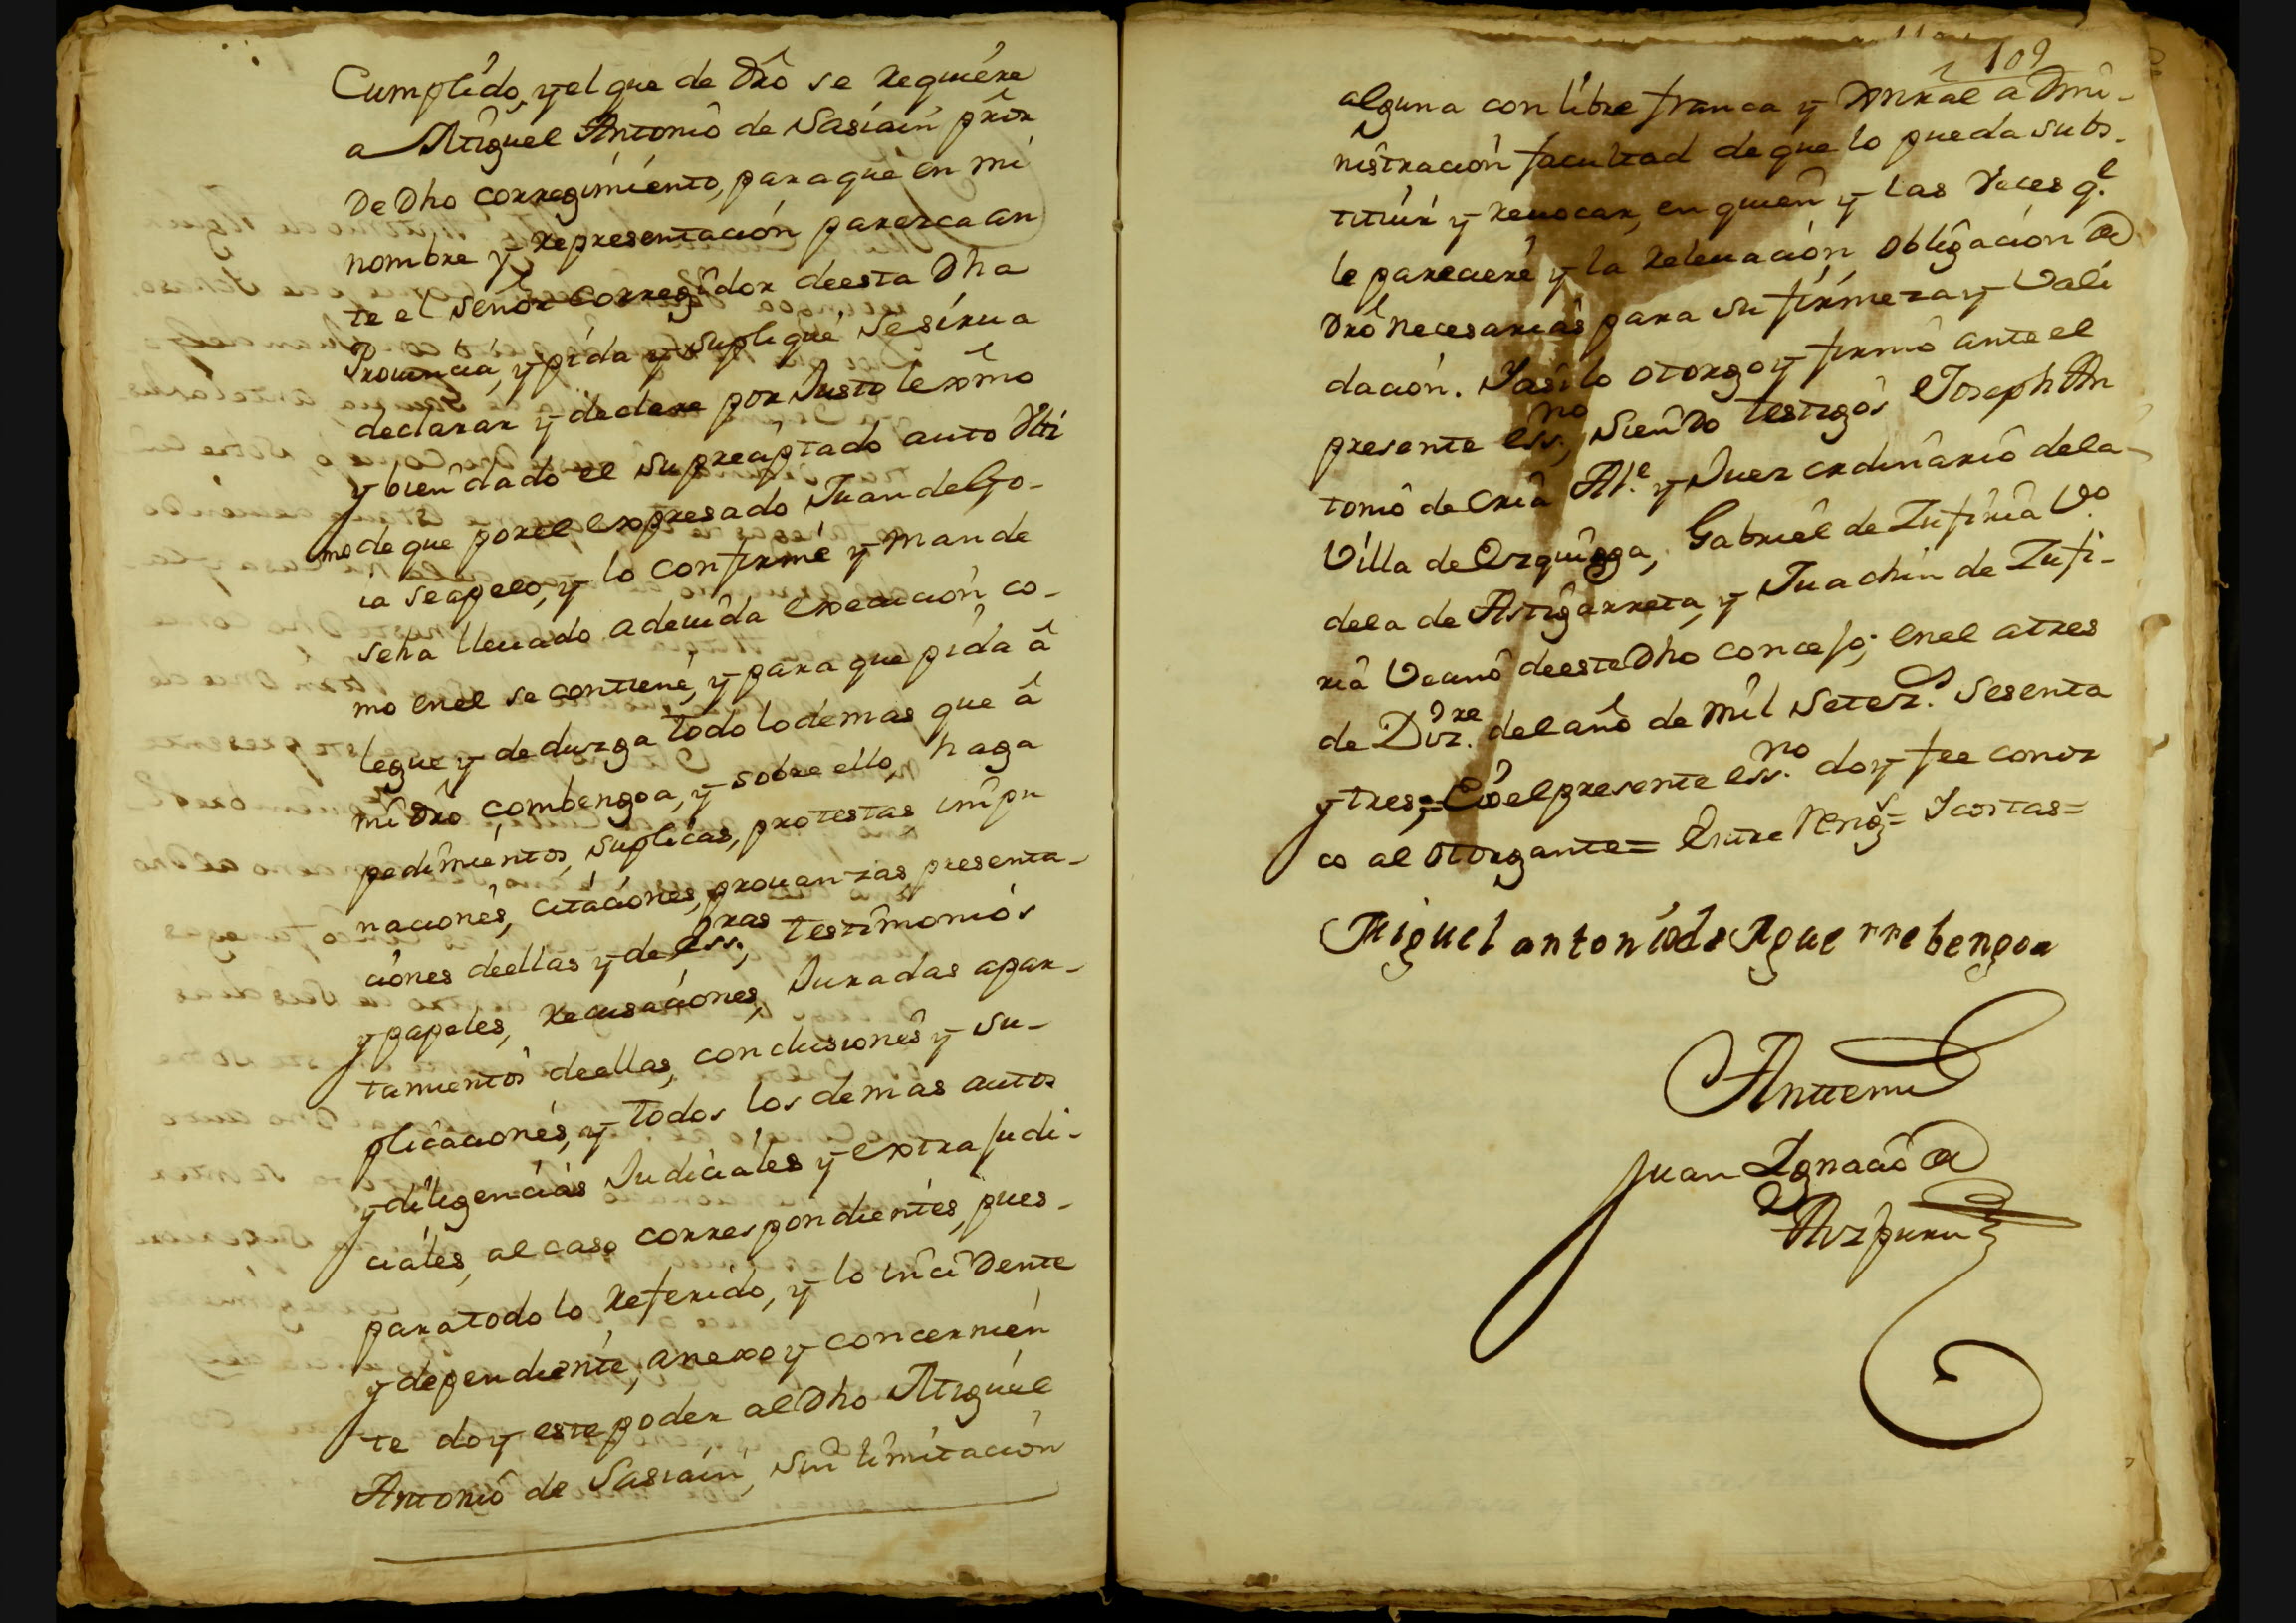 Cumplido, y el que de dro se requiere
a Miguel Antonio de Sasiain pror
de dho corregimiento, para que en mi
nombre y representación paresca an
te el señor corregidor de esta dha
Prouincia, y pida y suplique se sirua
declarar y declare por Justo lexmo
y bien dado el supreaptado auto Vlti
mo de que por el expresado Juan de Go-
ia se apelo, y lo confirme y mande
se ha lleuado a deuida execución, co-
mo en el se contiene, y para que pida á
legue, y deduzga todo lo demas que á
mi dro combengoa, y sobre ello, haga
pedimientos, suplicas, protestas impu
naciones, citaciones, prouanzas presenta-
ciones de ellas y de essras, testimonios
y papeles, recusaciones, Juradas apar-
tamientos de ellas, conclusiones y su-
plicaciones, y todos los demas autos
y diligencias Judiciales y extrajudi-
ciales, al caso correspondientes, pues-
para todo lo referido, y lo incidente
y dependiente, anexo y concernien
te doy este poder al dho Miguel
Antonio de Sasiain, sin limitación
109
alguna con libre franca y xnral admi-
nistración facultad de que lo pueda subs-
tituir y reuocar, en quien y las veces q.e
le pareciere y la releuación obligación de
dro necesarias para su firmeza y vali
dación. Y así lo otorgo y firmo ante el
presente ess.no, siendo testigos Joseph An
tonio de Oria Al.e y Juez ordinario de la
Villa de Ezquioga, Gabriel de Zufiria V.o
de la de Astigarreta, y Juachin de Zufi-
ria Vecino de este dho concejo; en el a tres
de Diz.re del año de mil setez.s sesenta
y tres,= E yo el presente ess.no doy fee conoz
co al otorgante= Entre Reng.s= Y costas=
Miguel antonio de Aguerrebengoa
Antte mi
Juan Ignacio de
Aizpuru